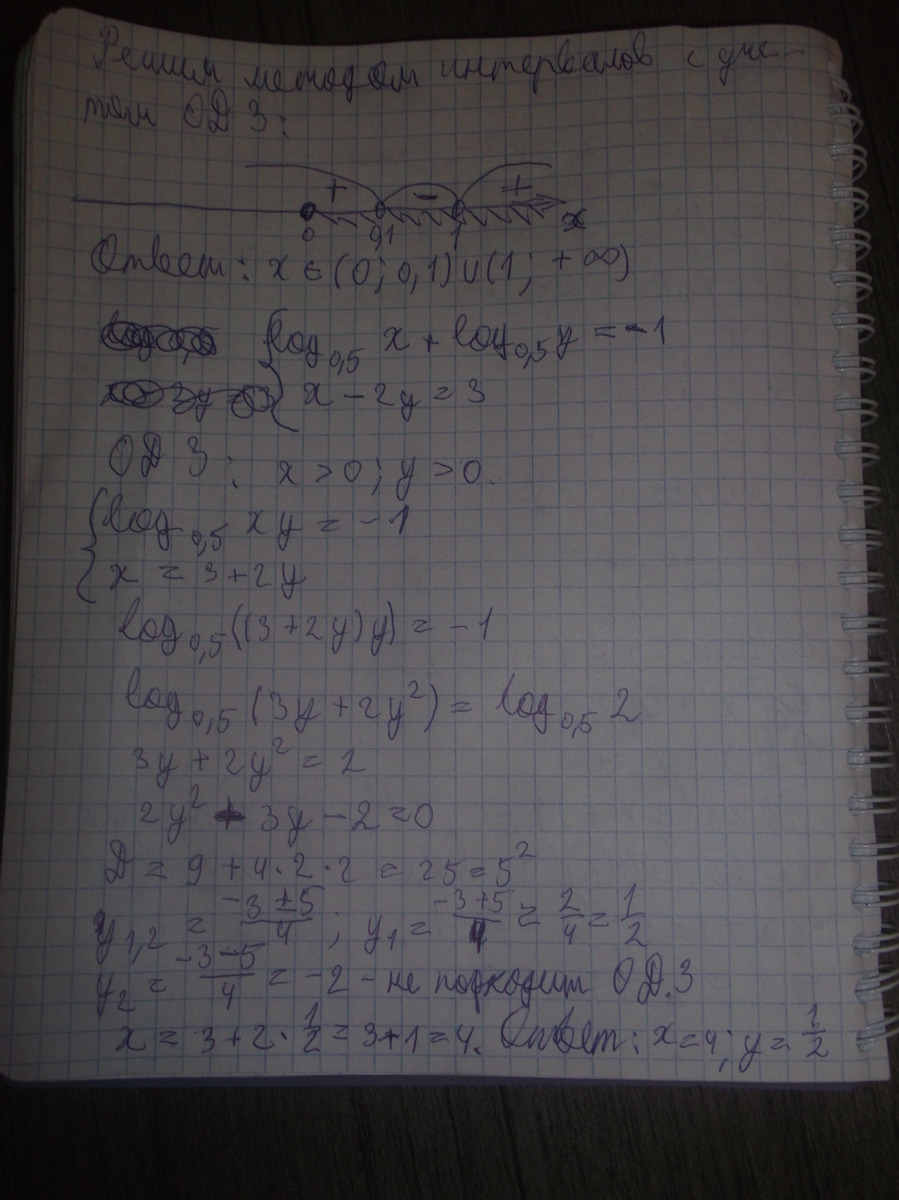 Решим методом интервалов с уче-
том ОДЗ:
+ - +
0 0,1 1 x
Ответ: x ∈ (0; 0,1) ∪ (1; +∞)
log0,5 x + log0,5 y = -1
x - 2y = 3
ОДЗ: x > 0; y > 0.
log0,5 xy = -1
x = 3 + 2y
log0,5 ((3 + 2y)y) = -1
log0,5 (3y + 2y²) = log0,5 2
3y + 2y² = 2
2y² + 3y - 2 = 0
D = 9 + 4·2·2 = 25 = 5²
y1,2 = (-3 ± 5)/4 ; y1 = (-3 + 5)/4 = 2/4 = 1/2
y2 = (-3 - 5)/4 = -2 - не подходит ОДЗ
x = 3 + 2 · 1/2 = 3 + 1 = 4. Ответ: x = 4; y = 1/2